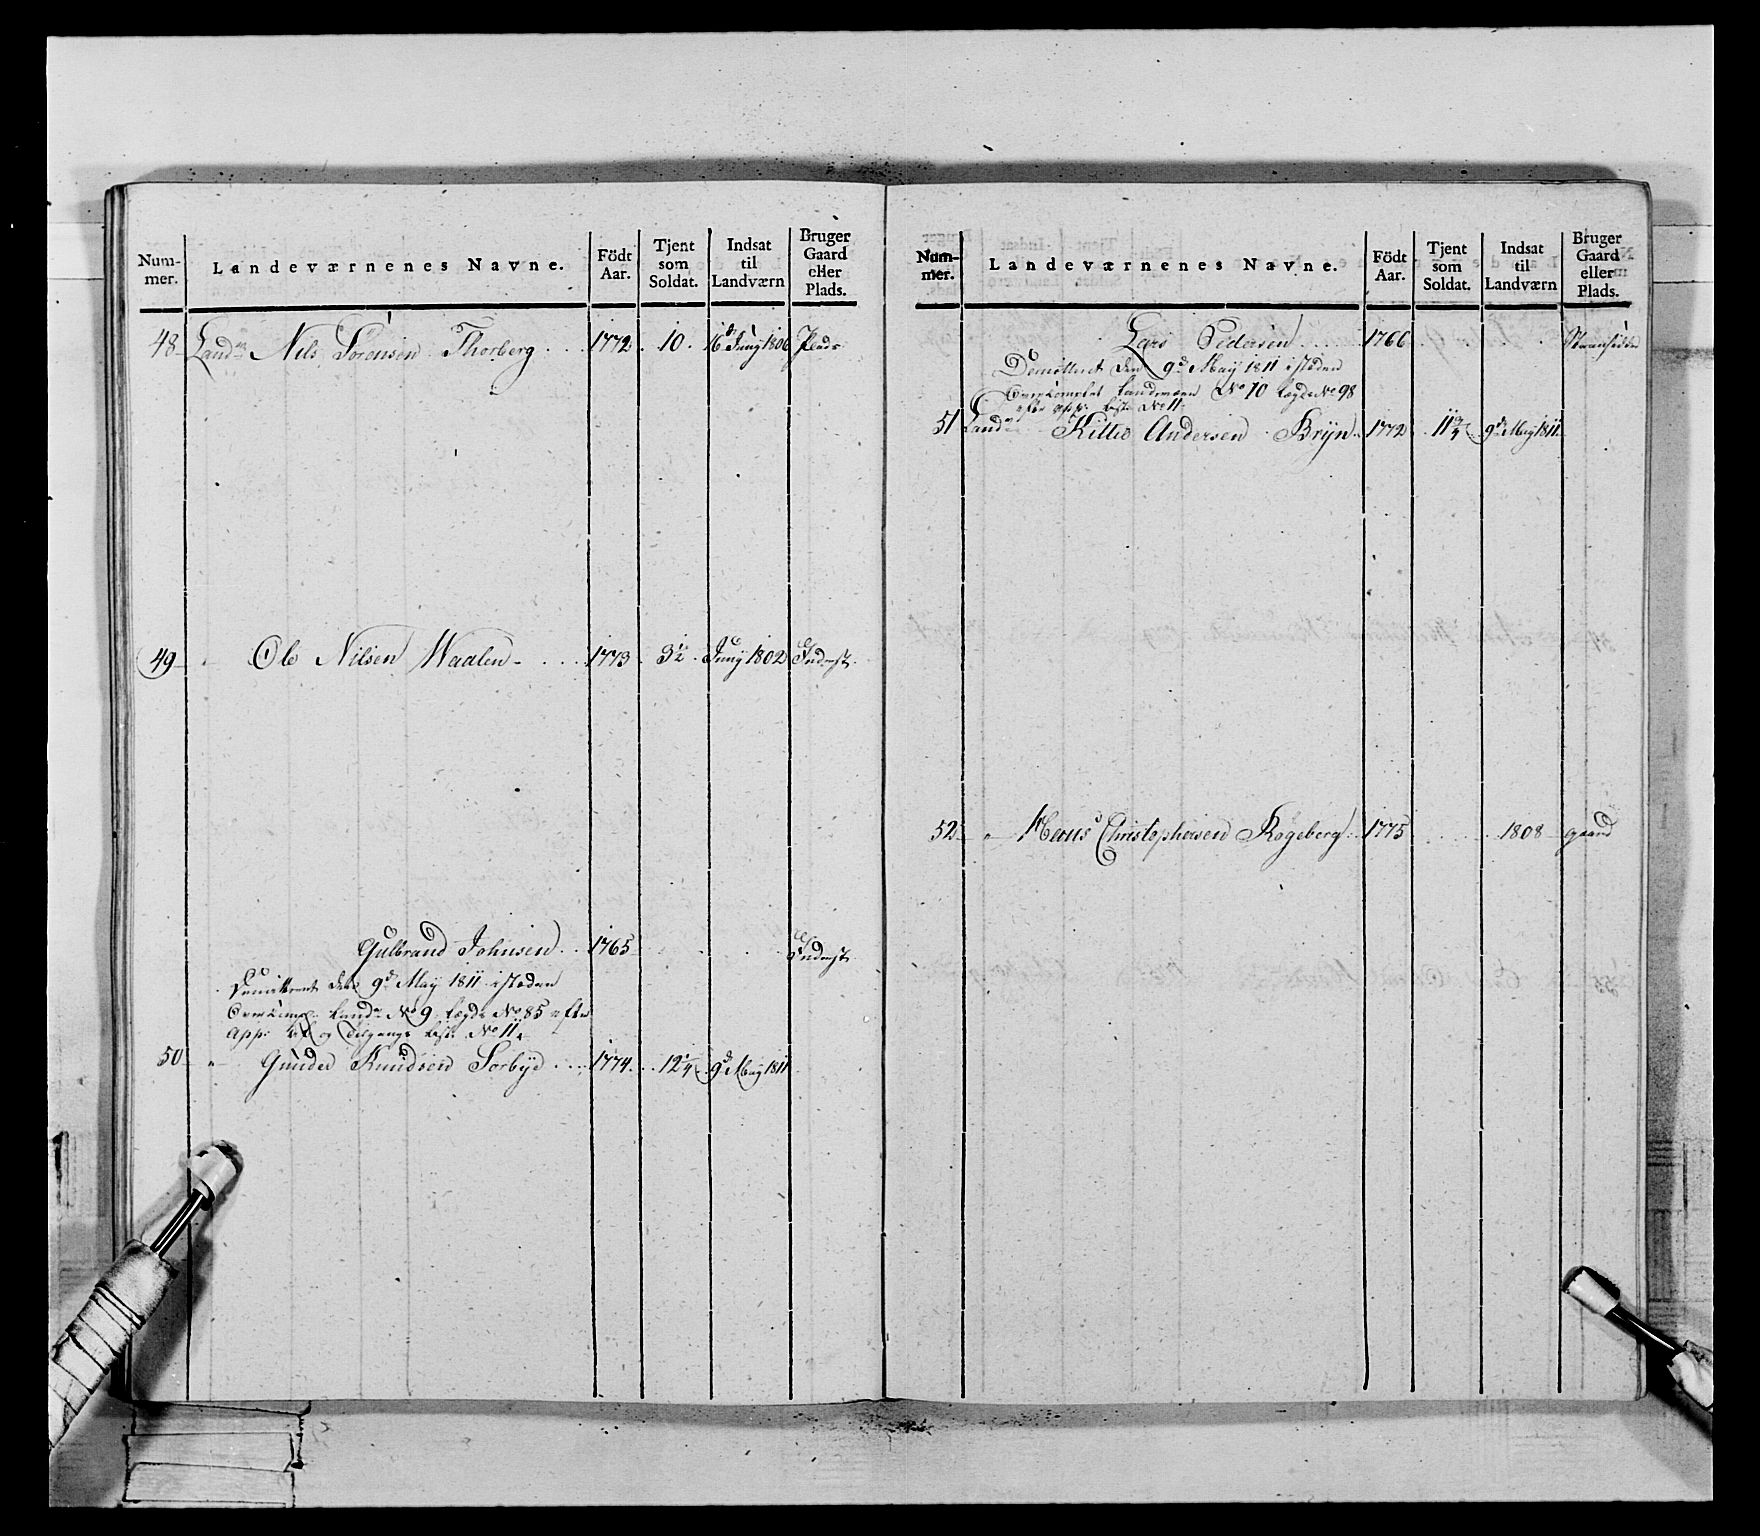 Num-
mer.
Landeværnenes Navne.
Födt
Aar.
Tjent
som
Soldat.
Indsat
til
Landværn
Bruger
Gaard
eller
Plads.
48 Land Nils Sörensen Thorberg 1772 10 16d Juny 1806 Plads
49 " Ole Nilsen Waalen 1773 3 1/2 Juny 1802 Inderst
Gulbrand Johnsen 1765 Inderst
Demitteret den 9d May 1811 isteden
Overcompl: Landn No 9 Lægds No 85 efter
App: Af og Tilgangs Liste No 11
50 " Gunder Knudsen Sorbye 1774 12 1/4 9d May 1811
Num-
mer.
Landeværnenes Navne.
Födt
Aar.
Tjent
som
Soldat.
Indsat
til
Landværn
Bruger
Gaard
eller
Plads.
Lars Pedersen 1766
Demitteret den 9d May 1811 isteden
Overcomplet Landeværn No 10 Lægds No 98
efter App: Liste No 11
51 Land Kittel Andersen Bryn 1772 11 3/4 9d May 1811
52 " Hans Christophersen Røgeberg 1775 1808 gaard